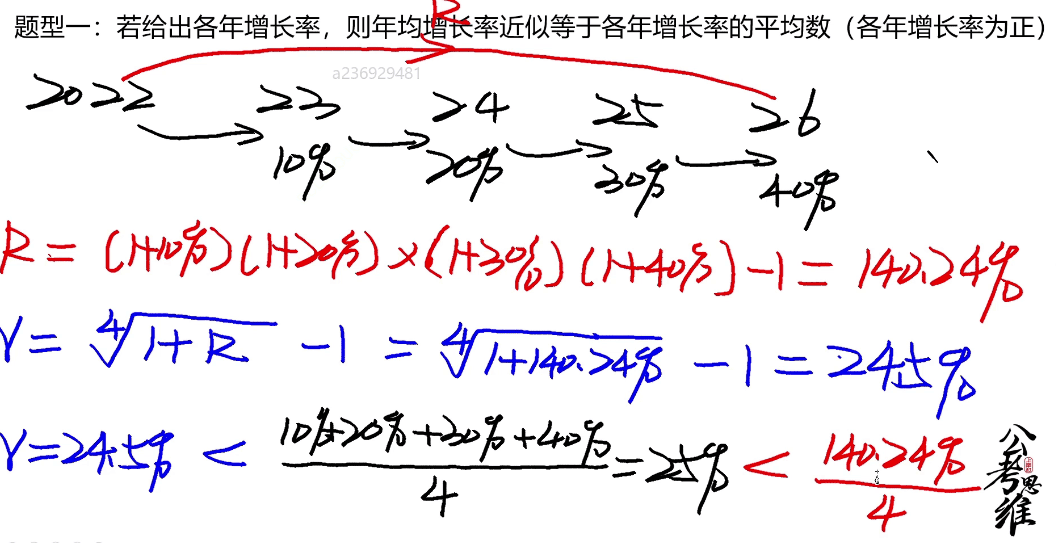 题型一：若给出各年增长率，则年均增长率近似等于各年增长率的平均数（各年增长率为正）
R
a236929481
2022 23 24 25 26
10% 20% 30% 40%
R = (1+10%)(1+20%)×(1+30%)(1+40%)-1 = 140.24%
r = ∜(1+R) - 1 = ∜(1+140.24%) - 1 = 24.5%
r = 24.5% < (10%+20%+30%+40%)/4 = 25% < 140.24%/4
公考思维